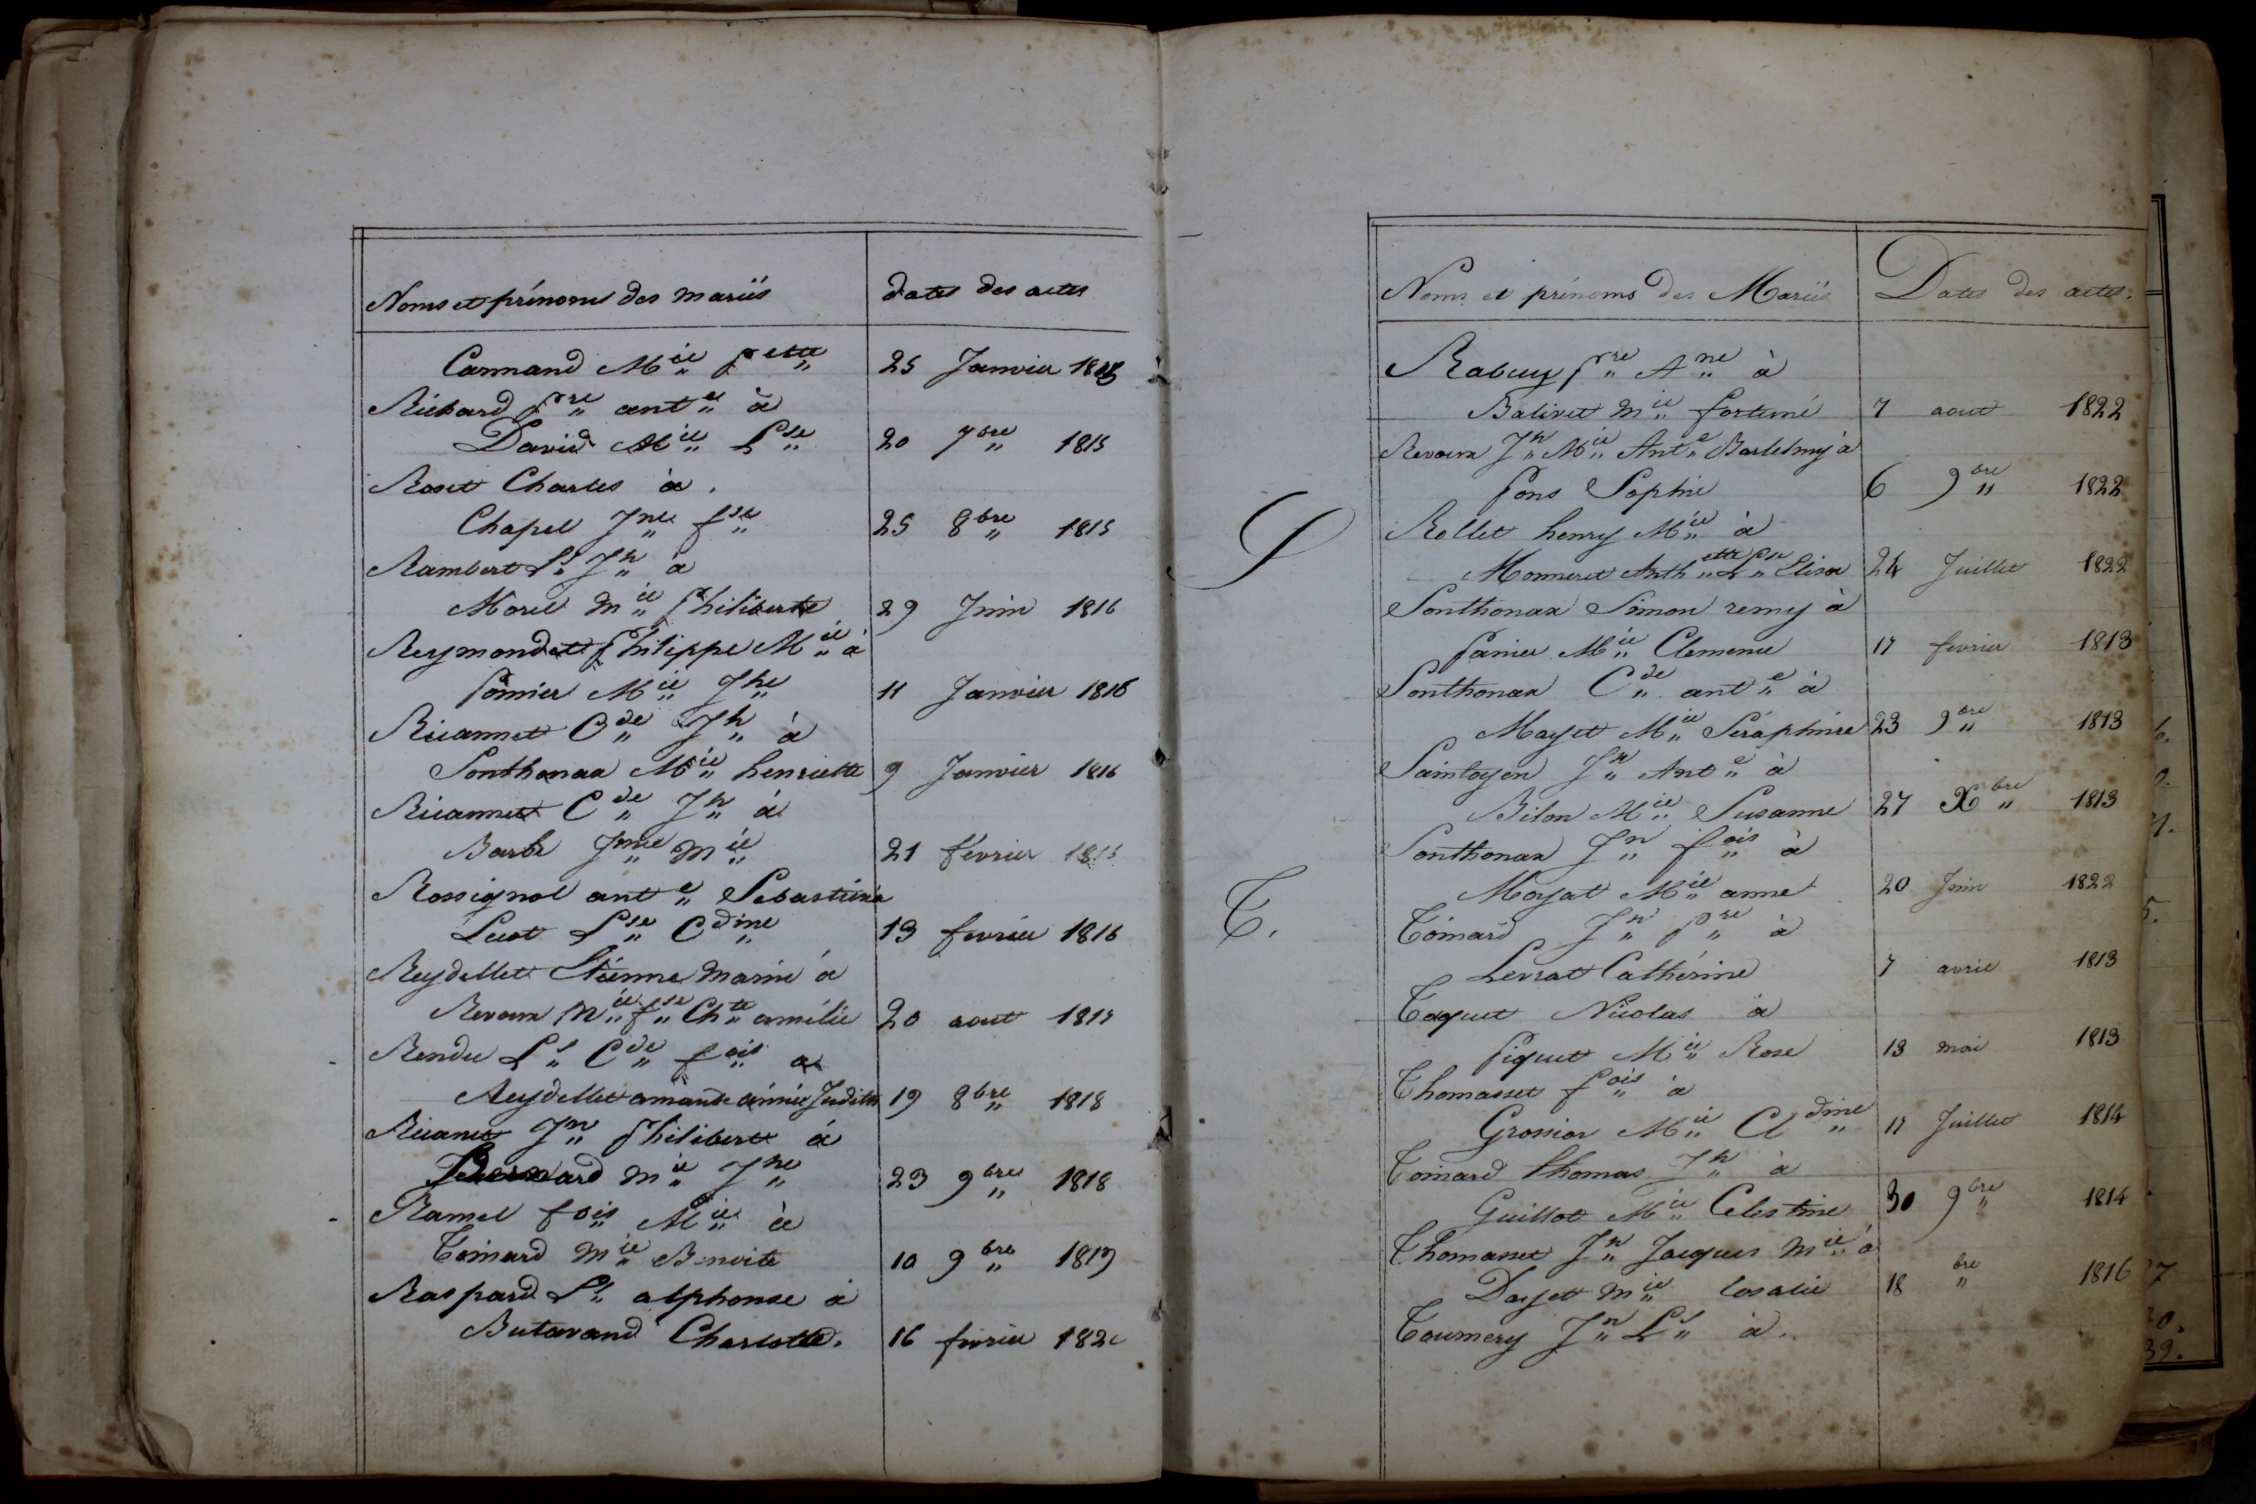 Noms et prénoms des mariés dates des actes
Carmand Mie Pette 25 Janvier 1815
Richard Pre ante à
David Mie Lse 20 7bre 1815
Roset Charles à.
Chapel Jne fse 25 8bre 1815
Rambert Ls Jh à
Morel Mie Philiberte 29 Juin 1816
Reymondet Philippe Mie à
Pomier Mie Jhe 11 Janvier 1816
Ricannet Cde Jh à
Sonthonax Mie henriette 9 Janvier 1816
Ricannet Cde Jh à
Barbe Jnne Mie 21 février
Rossignol ante Sebastien à
Luot Lse Cdine 13 fevrier 1816
Reydellet Etienne Marie à
Revoux Mie fse Chte amélie 20 aout
Rendu Ls Cde fois à
Reydellet amante aimée Judith 19 8bre 1818
Ricanet Jn Philibert à
Mie Jhe 23 9bre 1818
Ramel fois Mie à
Toinard Mie Benoite 10 9bre 1819
Raspard Ls alphonse à
Butavand Charlotte. 16 fevrier
Noms et prénoms des Mariés Dates des actes.
Rabuy Pre Ane à
Balivet Mie fortuné 7 aout 1822
Revoux Jh Mie Ante Bartelmy à
Pons Sophie 6 9bre 1822
S
Rollet henry Mie à
Monneret Anthette Lse Elisa 24 Juillet 1822
Sonthonax Simon remy à
Panier Mie Clemence 17 fevrier 1813
Sonthonax Cde ante à
Mayet Mie Séraphine 23 9bre 1813
Saintoyen Jh Ante à
Bilon Mie Susanne 27 Xbre 1813
Sonthonax Jn fois à
Moyat Mie anne 20 Juin 1822
T.
Toinard Jn Pre à
Levrat Cathérine 7 avril 1813
Taquet Nicolas à
Piquet Mie Rose 13 mai 1813
Thomasset fois à
Grossior Mie Cldine 11 Juillet 1814
Toinard thomas Jh à
Guillot Mie Celestine 30 9bre 1814
Thomasset Jn Jacques Mie à
Dayet Mie losalie 18 bre 1816
Tournery Jn Ls à.